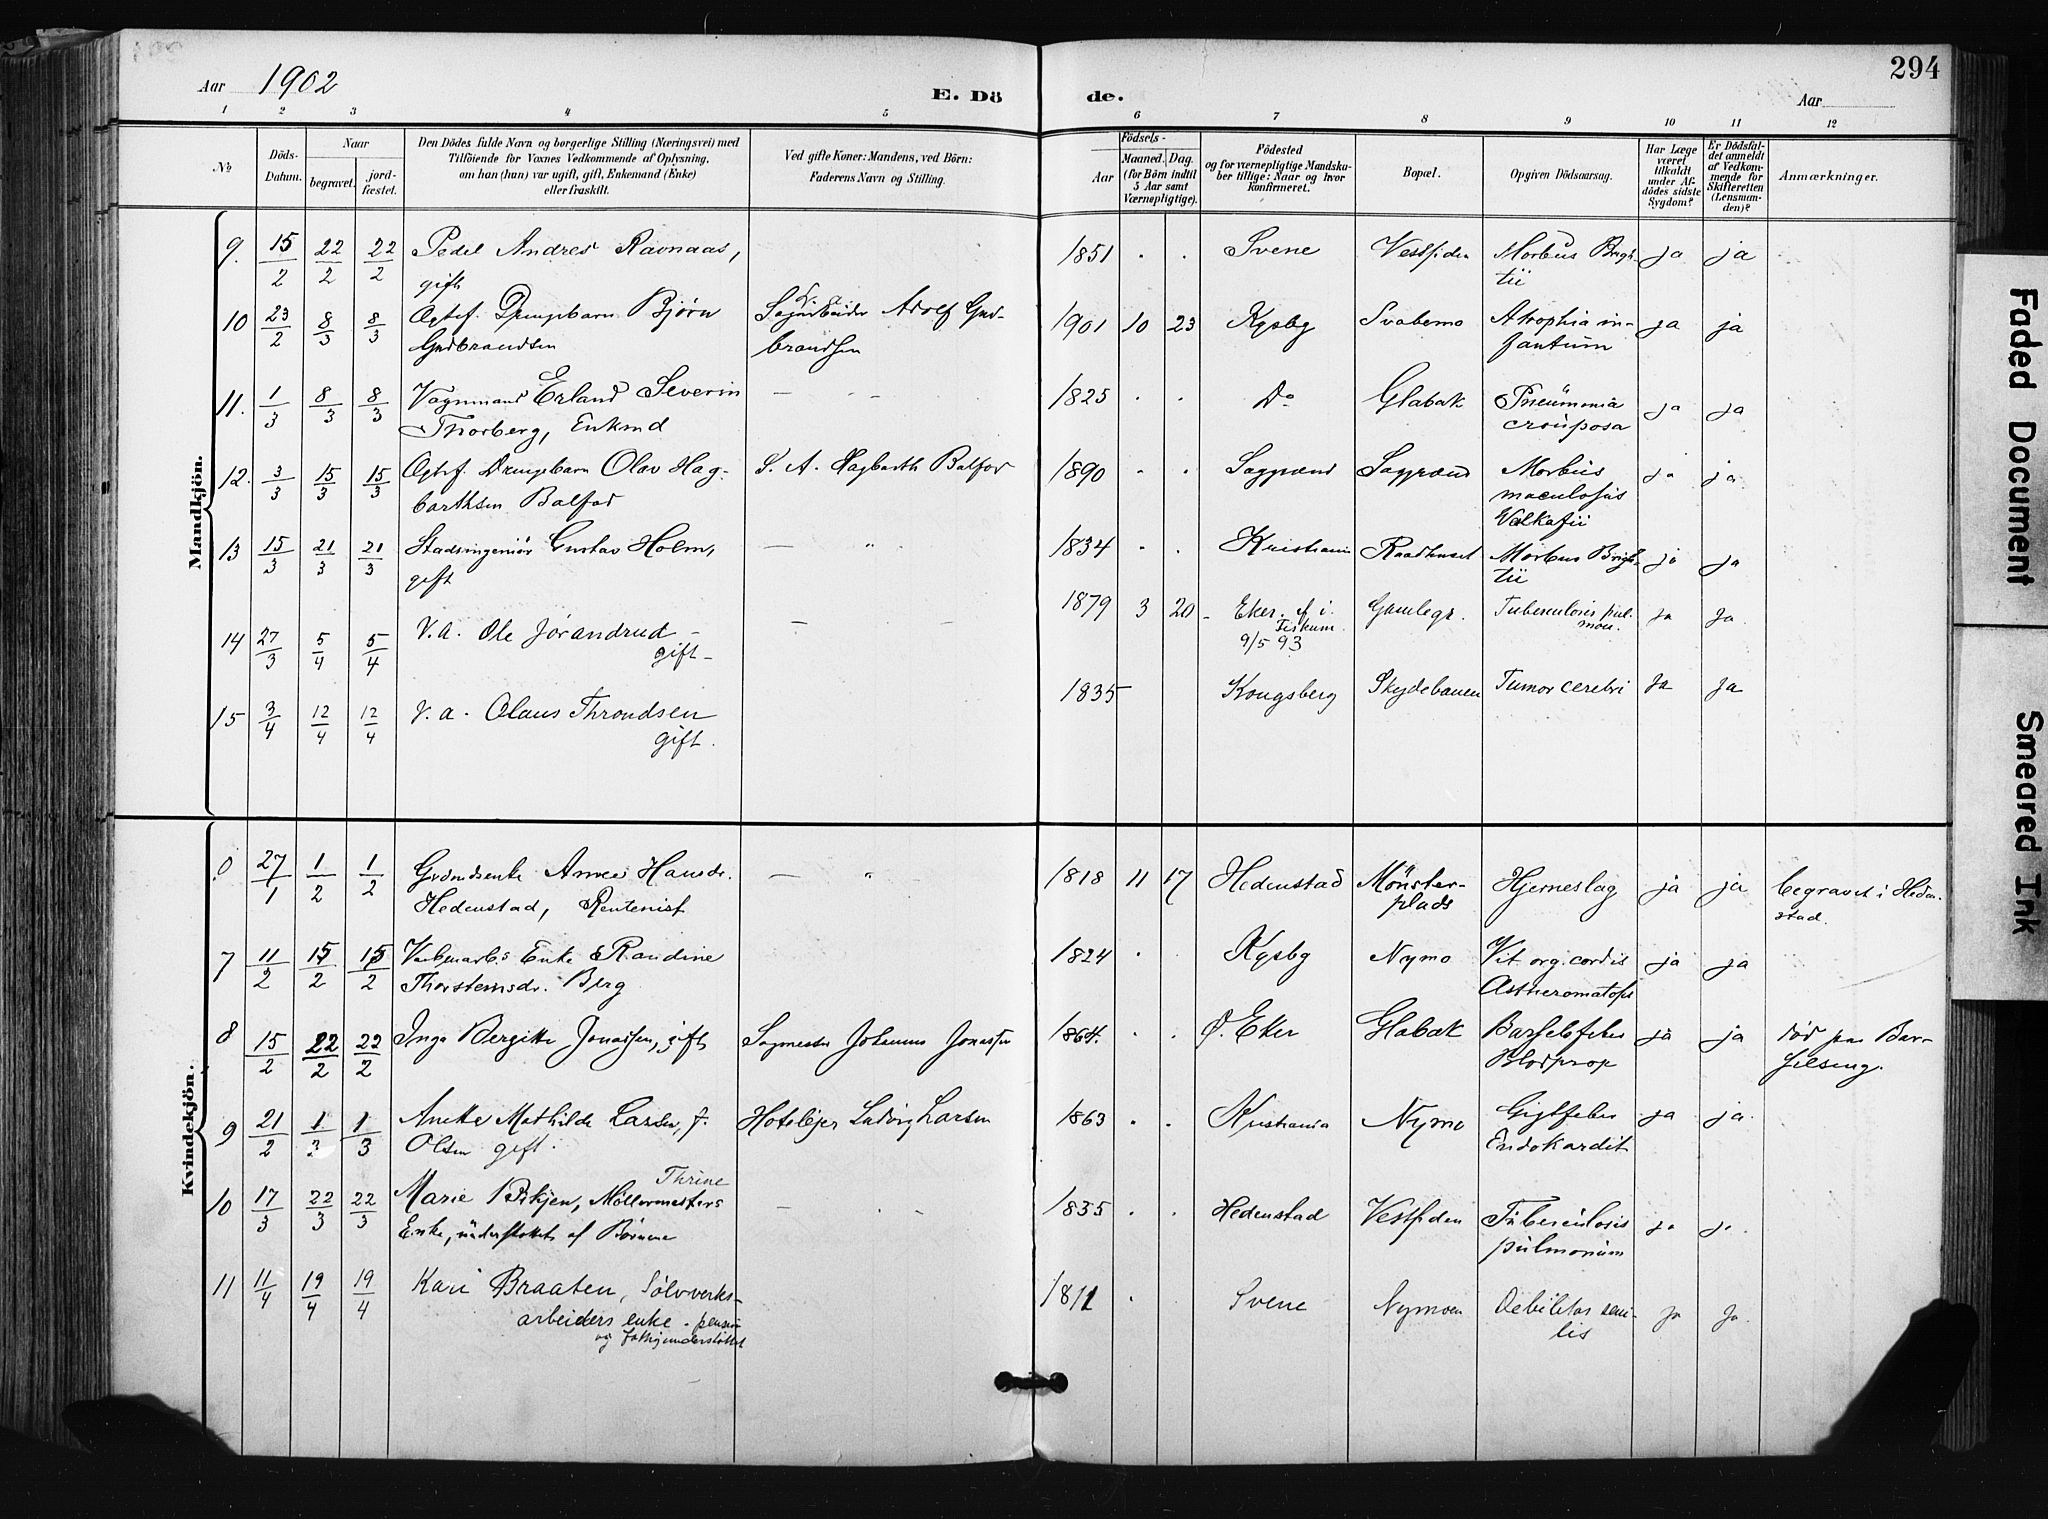 294
Aar 1902
E. Dö de.
Aar
1 2 3 4 5 6 7 8 9 10 11 12
No
Döds-Datum.
Naar
begravet.
jord-fæstet.
Den Dödes fulde Navn og borgerlige Stilling (Næringsvei) med
Tilföiende for Voxnes Vedkommende af Oplysning,
om han (hun) var ugift, gift, Enkemand (Enke)
eller fraskilt.
Ved gifte Koner: Mandens, ved Börn:
Faderens Navn og Stilling.
Födsels-
Aar
Maaned. Dag.
(for Börn indtil
5 Aar samt
Værnepligtige).
Födested
og for værnepligtige Mandska-
ber tillige: Naar og hvor
Konfirmeret.
Bopæl.
Opgiven Dödsaarsag.
Har Læge
været
tilkaldt
under Af-
dödes sidste
Sygdom?
Er Dödsfal-
det anmeldt
af Vedkom-
mende for
Skifteretten
(Lensman-
den)?
Anmærkninger.
Mandkjön.
9. 15/2 22/2 22/2 Pedel Andres Ravnaas, 1851 Svene Vestsiden Morbus Brigh- ja ja
gift tii
10 23/2 8/3 8/3 Ogtef. Drengebarn Bjørn Sagarbeider Adolf Gud- 1901 10 23 Kgsbg Svabemo Atrophia in- ja ja
Gudbrandsen brandsen fantum
11. 1/3 8/3 8/3 Vognmand Erland Severin — 1825 Do Glabak Pneumonia ja ja
Thorberg, Enkmd crouposa
12. 3/3 15/3 15/3 Ogtef. Drengebarn Olav Hag- S. A. Hagbarth Balfod 1890 Saggrænd Saggrænd Morbus ja ja
barthsen Balfod maculosus
13 15/3 21/3 21/3 Stadsingeniør Gustav Holm, — " 1834 Kristiania Raadhuset Morbus Brigh- ja ja
gift tii
14 27/3 5/4 5/4 V.a. Ole Jørandrud — — 1879 3 20 Eker. cf i. Gamlegr. Tuberculosis pul- ja Ja
gift Fiskum mon.
9/5 93
15 3/4 12/4 12/4 V.a. Olaus Throndsen 1835 Kongsberg Skydebanen Tumor cerebri Ja Ja
gift.
Kvindekjön.
27/1 1/2 1/2 Hansdr. — " 1818 11 17 Hedenstad Mönster- Hjerneslag ja ja begravet i Heden-
Hedenstad, Rentenist plads stad.
7 11/2 15/2 15/2 Enke Randine 1824 Kgsbg Nymo Vit. org. cordis ja ja
Thorstensdr. Berg
8 15/2 22/2 22/2 Inga Bergitte Jonassen, gift Sagmester Johannes Jonassen 1864. Ø. Eker Glabak Barselfeber ja ja død paa Bar-
Blodprop selseng.
9 21/2 1/3 1/3 Mathilde Larsen, f. Hotelejer Ludvig Larsen 1863 Kristiania Nymo Gigtfeber ja ja.
Olsen gift. Endokardit
Thrine
10 17/3 22/3 22/3 Marie Bikjen, Møllermesters — 1835 Hedenstad Vestsiden Tuberculosis ja ja
Enke, understøttet af Børnene pulmonum
11 11/4 19/4 19/4 Kari Braaten, Sølvverks- 1811 Svene Nymoen Debilitas seni- Ja Ja
arbeiders enke - pension lis
og fattigunderstøttet
Faded Document
Smeared Ink